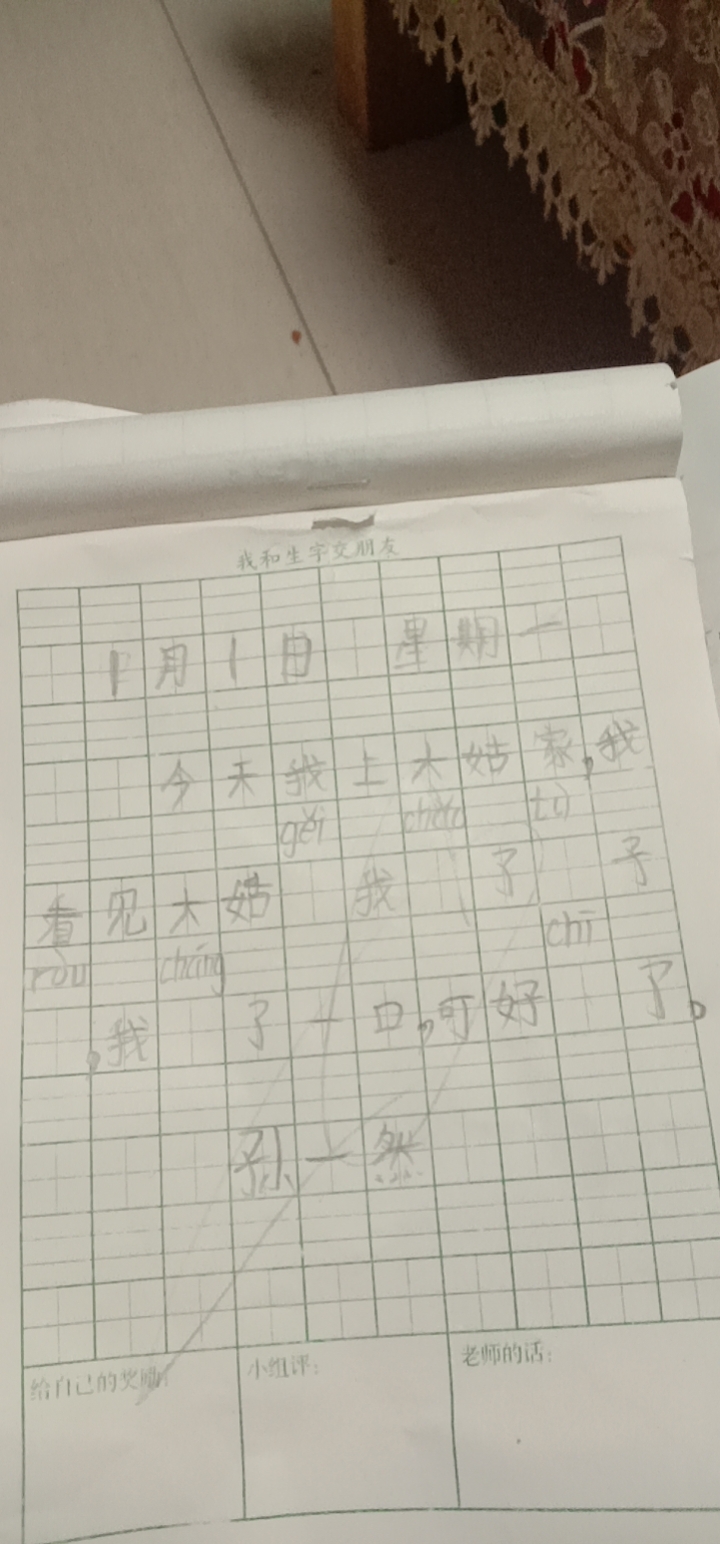 我和生字交朋友
1月1日 星期一
今天我上大姑家,我
gěi chǎo tù
看见大姑 我 了 子
ròu cháng chī
,我 了一口,可好 了。
孙一然
给自己的奖励: 小组评: 老师的话: